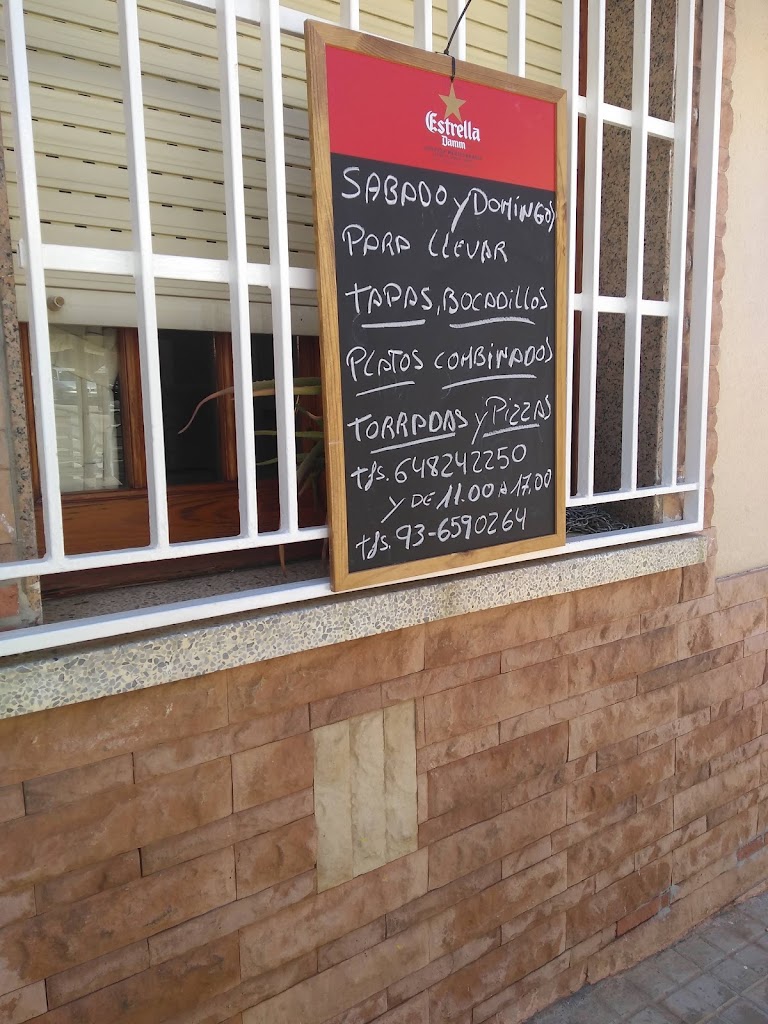 Estrella
Damm
SABADO y DOMINGOS
PARA LLEVAR
TAPAS, BOCADILLOS
PLATOS COMBINADOS
TORRADAS y PIZZAS
tfs. 648242250
y DE 11.00 A 17.00
tfs. 93-6590264